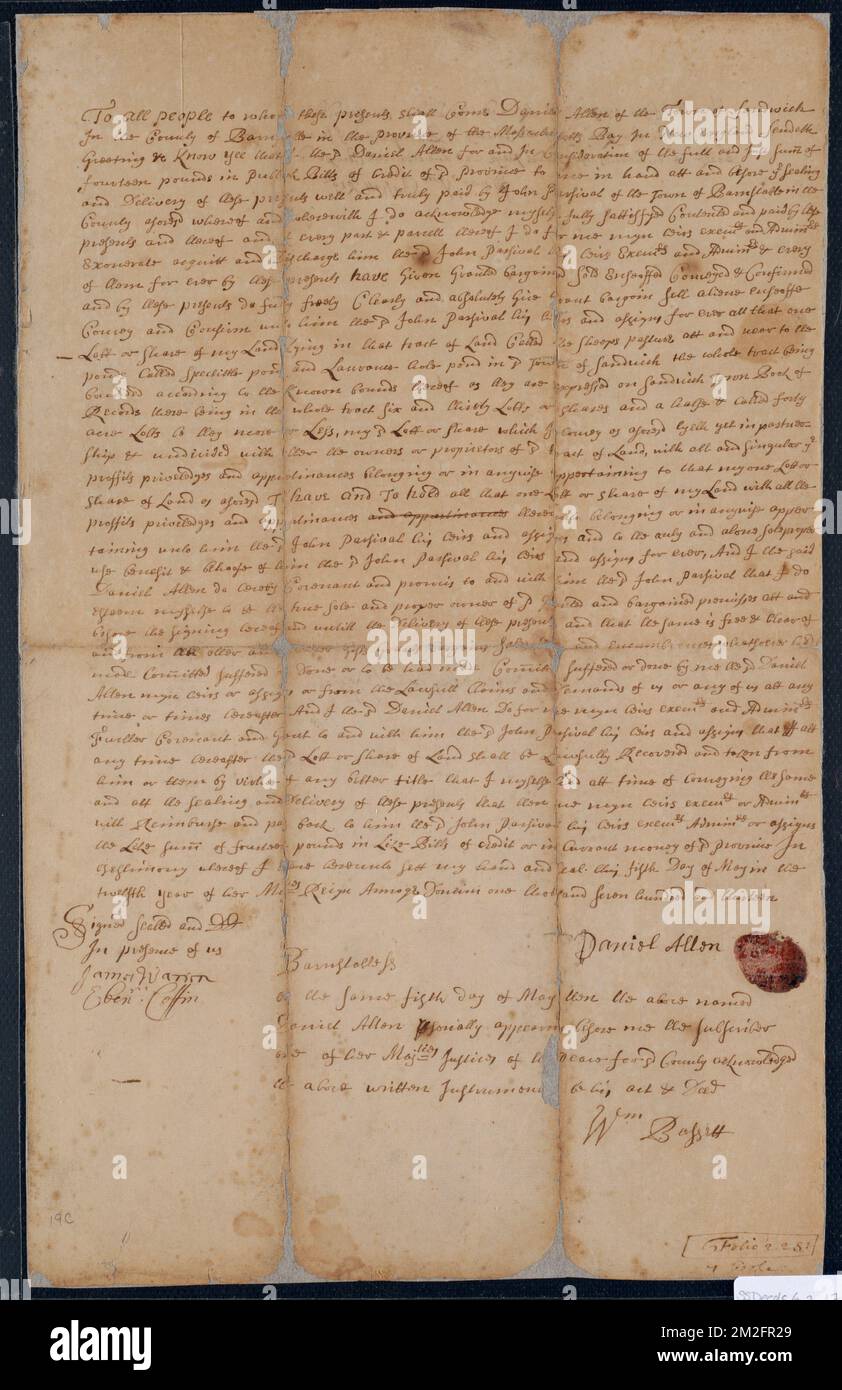 To all people to whom these presents shall Come Daniel Allen of the Town of Sandwich
In the County of Barn le in the province of the Massachu etts Bay In New england Sendeth
Greeting &c Know yee that I the sd Daniel Allen for and in Consideration of the full and Just sum of
fourteen pounds in publ k Bills of Credit of sd province to me in hand att and before ye sealing
and Delivery of these pre nts well and truly paid by John Parsival of the Town of Barnstable in the
County aforesd whereof and wherewith I do acknowledge myself fully sattisfyed Contented and paid by these
presents and thereof and of every part & parcell thereof I do for me myn heirs execurs and Adminrs
Exonerate acquitt and discharge him the sd John Parsival his heirs Execurs and Adminrs & every
of them for ever by these presents have Given Granted bargained Sold Enfeoffed Conveyed & Confirmed
and by these presents do fully freely Clearly and absolutely Give Grant bargain sell aliene enfeoffe
Convey and Confirm unto him the sd John Parsival his heirs and assigns for ever all that one
Lott or share of my Land lying in that tract of Land Called the sheeps pasture att and near to the
pond Called Specttle pond and Laurance hole pond in sd Town of Sandwich the whole tract being
bounded according to the Known bounds thereof as they are expressed on Sandwich Town Book of
Records there being in the whole tract six and thirty Lotts or sheares and a halfe & Called forty
acre Lotts be they more or Less, my sd Lott or sheare which I Convey as aforesd lyeth yet in partner-
ship & undivided with other the owners or propriators of sd tract of Land, with all and singular ye
proffits priviledges and appurtinances belonging or in anywise appertaining to that my one Lott or
share of Land as aforesd To have and To hold all that one Lott or share of my Land with all the
proffits priviledges and appurtinances and appurtinances thereunto belonging or in anywise apper
taining unto him the sd John Parsival his heirs and assigns and to the only and alone sole proper
use benefit & behoofe of him the sd John Parsival his heirs and assigns for ever, And I the said
Daniel Allen do hereby Covenant and promis to and with him the sd John Parsival that I do
esteem myselfe to be the true sole and proper owner of sd Granted and bargained premisses att and
before the signing hereof and untill the Delivery of these presents and that the same is free & clear of
and from all other and and encumbrences whatsoever had
made Committed suffered Done or to be had made Committed suffered or done by me the sd Daniel
Allen myn heirs or assigns or from the Lawfull Claims and Demands of us or any of us att any
time or times hereafter And I the sd Daniel Allen Do for me myn heirs execurs and Adminrs
Further Covenant and Grant to and with him the sd John Parsival his heirs and assigns that if att
any time hereafter the sd Lott or share of Land shall be Lawfully Recovered and taken from
him or them by virtue of any better title that I myselfe had att time of conveying the same
and att the sealing and Delivery of these presents that then me myn heirs execurs or Adminrs
will Reimburse and pay back to him the sd John Parsival his heirs execurs Adminrs or assigns
the Like summ of fourteen pounds in Like Bills of Credit or in Currant money of sd province In
testimony whereof I have hereunto sett my hand and seal this fifth Day of May in the
twelfth year of her Maties Reign Annoqe Domini one thousand seven hundred and thirteen
Signed Sealed and DD
In presence of us
James Warren
Ebenr: Coffin
Daniel Allen
Barnstable ss
on the same fifth day of May then the above named
Daniel Allen psonally appearing before me the subscriber
one of her Majties Justices of the peace for sd County acknowledged
the above written Instrument to be his act & Deed
Wm Bassett
19C
Folio 228
alamy
Image ID: 2M2FR29
www.alamy.com